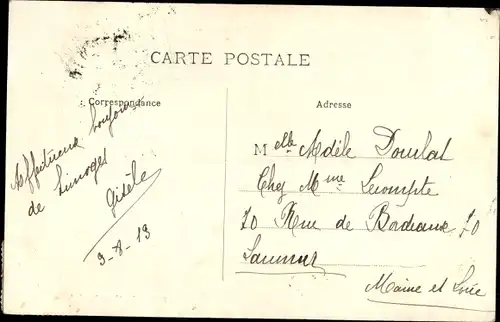 CARTE POSTALE
Correspondance
Adresse
Affectueux bonjour
de Limoges
Gisèle
9-8-13
Melle Adèle Doulat
Chez Mme Lecompte
70 Rue de Bordeaux 70
Saumur
Maine et Loire